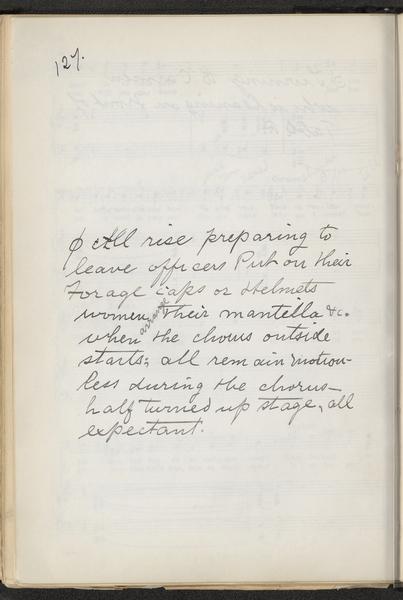 127.
φ All rise preparing to
leave officers Put on their
Forage caps or Helmets
women arrange their mantilla &c.
when the chorus outside
starts; all remain motion-
less during the chorus—
half turned up stage, all
expectant.